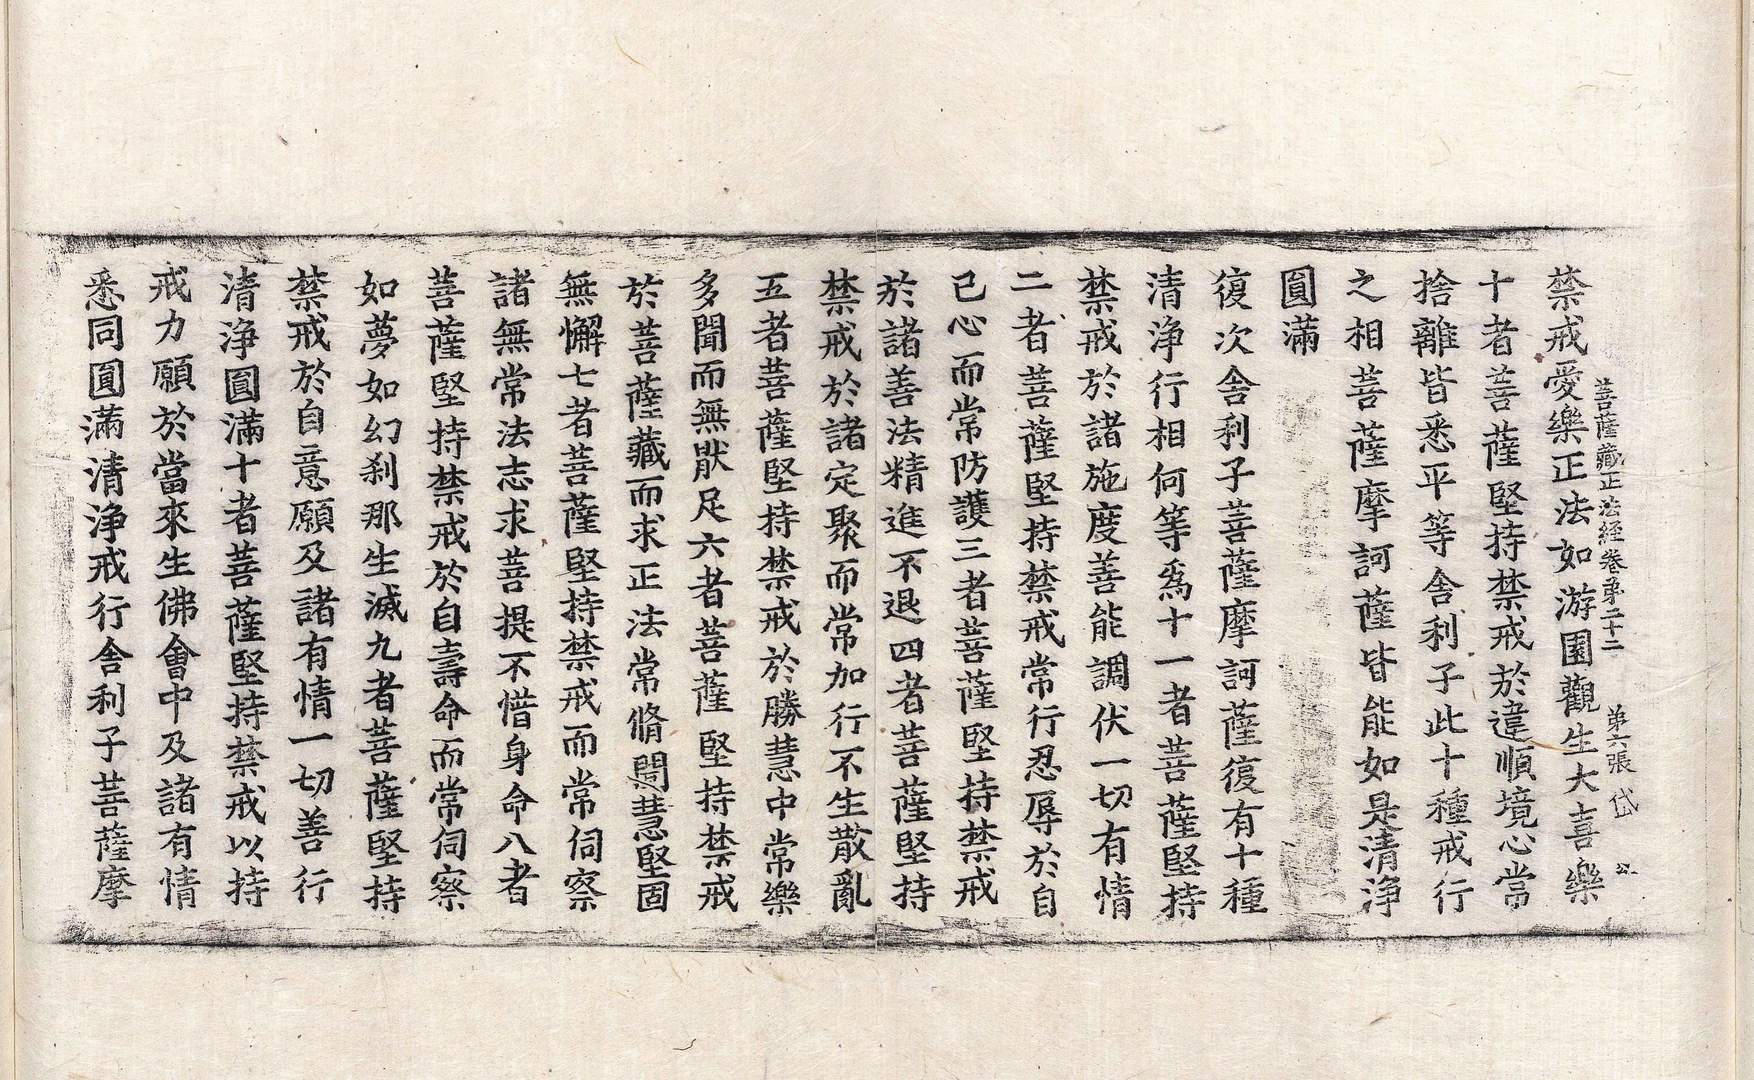 菩薩藏正法經卷第二十二　第六張　岱　公
禁戒愛樂正法如游園觀生大喜樂
十者菩薩堅持禁戒於違順境心常
捨離皆悉平等舍利子此十種戒行
之相菩薩摩訶薩皆能如是清淨
圓滿
復次舍利子菩薩摩訶薩復有十種
清淨行相何等爲十一者菩薩堅持
禁戒於諸施度善能調伏一切有情
二者菩薩堅持禁戒常行忍辱於自
己心而常防護三者菩薩堅持禁戒
於諸善法精進不退四者菩薩堅持
禁戒於諸定聚而常加行不生散亂
五者菩薩堅持禁戒於勝慧中常樂
多聞而無猒足六者菩薩堅持禁戒
於菩薩藏而求正法常脩聞慧堅固
無懈七者菩薩堅持禁戒而常伺察
諸無常法志求菩提不惜身命八者
菩薩堅持禁戒於自壽命而常伺察
如夢如幻刹那生滅九者菩薩堅持
禁戒於自意願及諸有情一切善行
清淨圓滿十者菩薩堅持禁戒以持
戒力願於當來生佛會中及諸有情
悉同圓滿清淨戒行舍利子菩薩摩